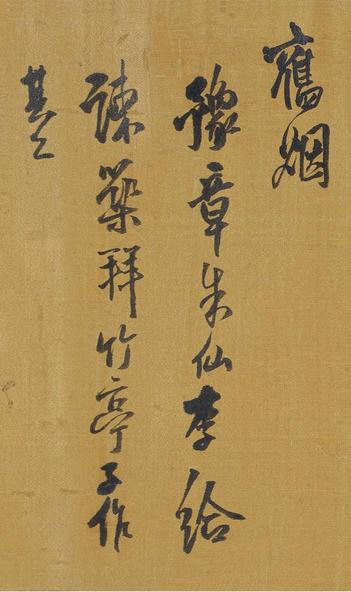 舊烟
豫章朱仙李給
諫築拜竹亭子作
其